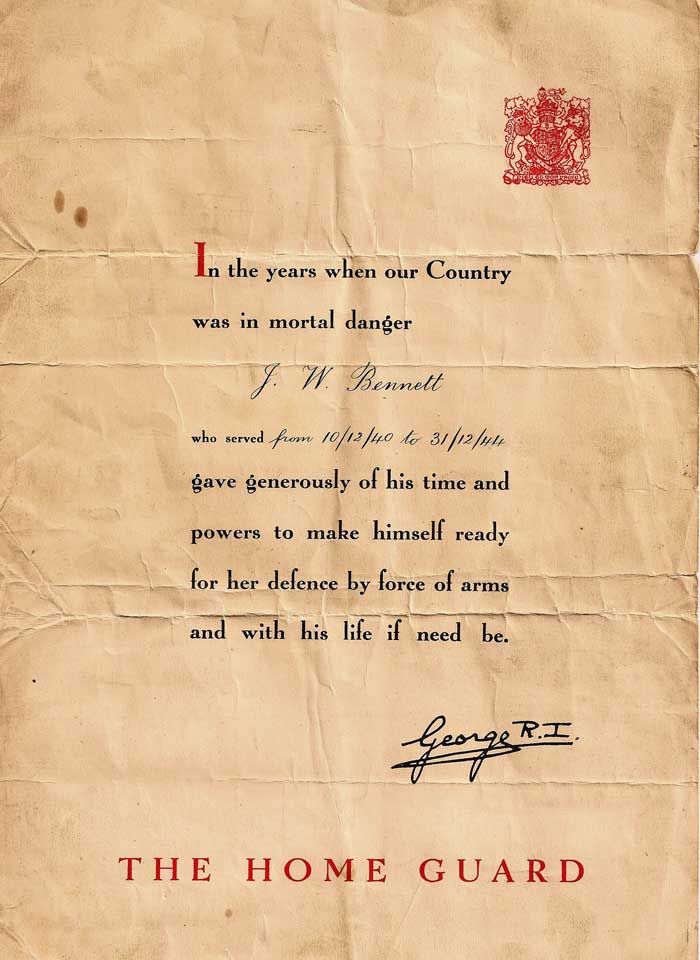 DIEU ET MON DROIT
In the years when our Country
was in mortal danger
J. W. Bennett
who served from 10/12/40 to 31/12/44
gave generously of his time and
powers to make himself ready
for her defence by force of arms
and with his life if need be.
George R.I.
THE HOME GUARD